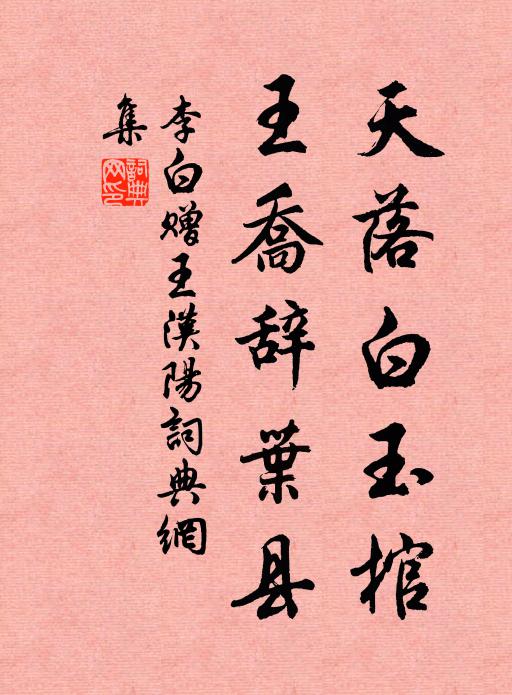 天落白玉棺
王喬辞葉县
李白赠王漢陽詞典網
集
詞典
网印